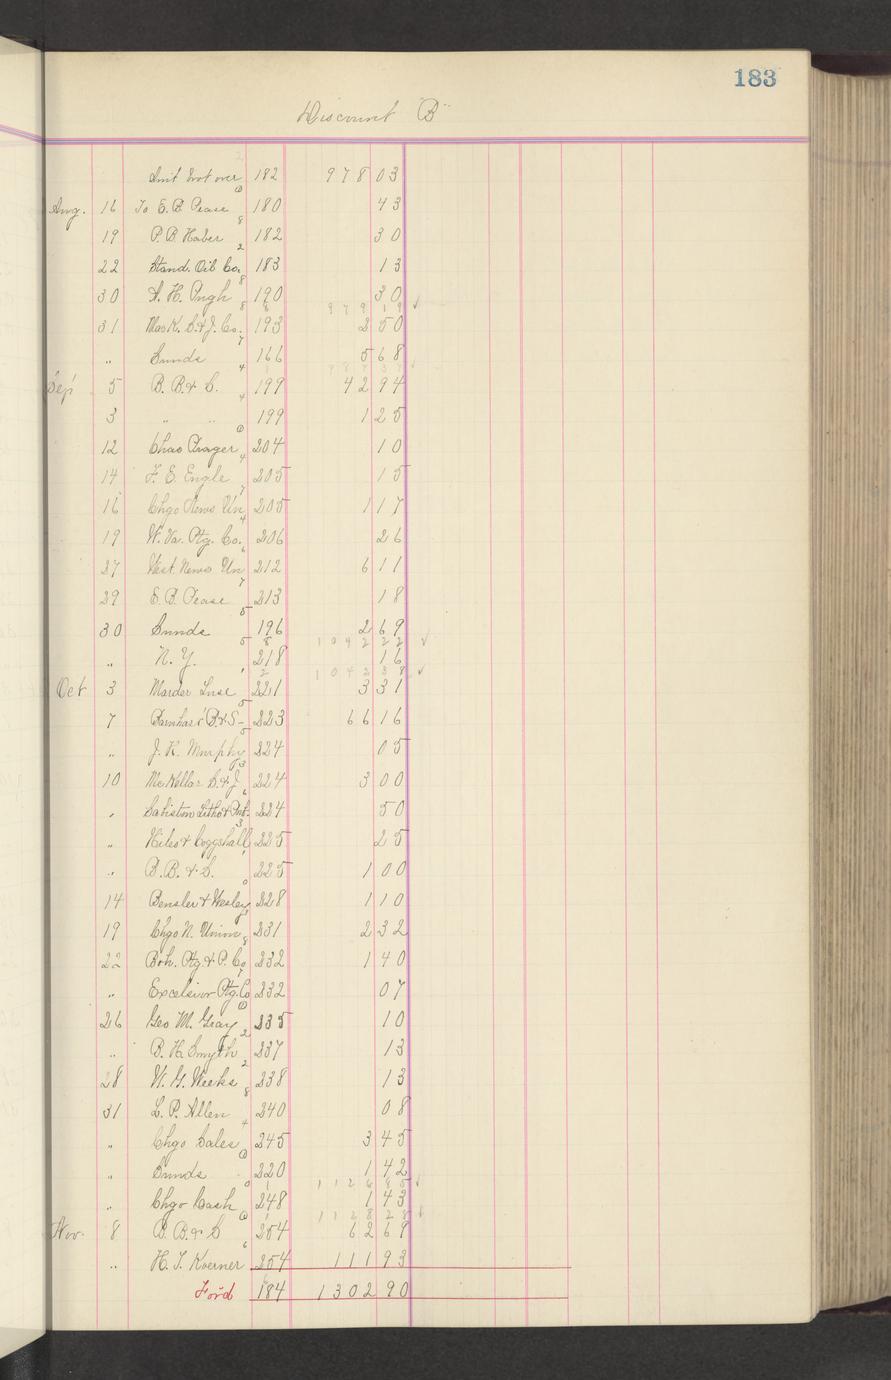 183
Discount "B"
Amt brot over 182 978 03
Aug. 16 To E. B. Pease 180 43
19 P. B. Haber 182 30
22 Stand. Oil Co. 183 13
30 A. H. Pugh 190 30
979 19 ✓
31 MacK. S. & J. Co. 193 2 50
" Sunds 166 5 68
Sep 5 B. B. & S. 199 42 94
3 " " 199 1 25
12 Chas Prager 204 10
14 F. E. Engle 205 15
16 Chgo News Un 205 1 17
19 W. Va. Ptg. Co. 206 26
27 West. News Un 212 6 11
29 E. B. Pease 213 18
30 Sunds 196 2 69
1042 22 ✓
" N. Y. 218 16
1042 38 ✓
Oct 3 Marder Luse 221 3 31
7 Barnhart B. & S- 223 66 16
" J. K. Murphy 224 05
10 McKellar S. & J. 224 3 00
" Sabiston Litho & Pub. 224 50
" Hiles & Coggshall 225 25
" B. B. & S. 225 1 00
14 Bensler & Wesley 228 1 10
19 Chgo N. Union 231 2 32
22 Boh. Ptg. & P. Co 232 1 40
" Excelsior Ptg. Co 232 07
26 Geo M. Gray 235 10
" B. H. Smyth 237 13
28 W. G. Weeks 238 13
31 L. P. Allen 240 08
" Chgo Sales 245 3 45
" Sunds 220 1 42
1126 85 ✓
" Chgo Cash 248 1 43
1128 28 ✓
Nov. 8 B. B. & S 254 62 69
" H. T. Koerner 254 111 93
Ford 184 1302 90